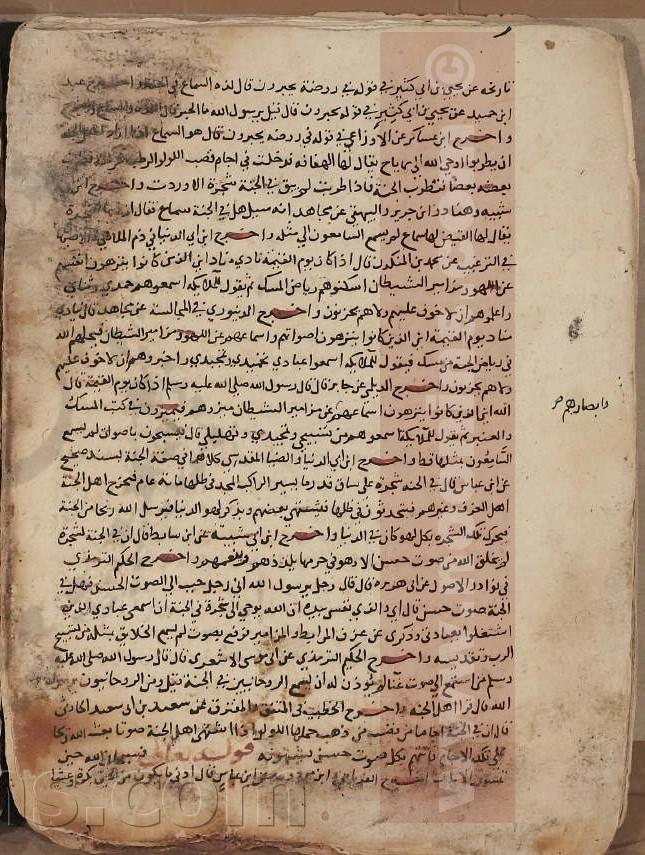 تاريخه عن يحيي بن ابي كثير في قوله في روضة يحبرون قال لذة السماع في الجنة واخرج عبد
ابن حميد عن يحيي بن ابي كثير في قوله يحبرون قال قيل يرسول الله ما الحبر قال
واخرج ابن عساكر عن الاوزاعي في قوله في روضه يحبرون قال هو السماع اذا اراد اهل الجنة
ان يطربوا اوحي الله الي رياح يقال لها الهفافه فدخلت في اجام قصب اللولو الرطب
بعضه بعضا فتطرب الجنة فاذا طربت لم يبق في الجنة شجرة الا وردت واخرج ابن
شيبه وهناد وابن جرير والبيهقي عن مجاهد انه سيل هل في الجنة سماع فقال ان شجرة
يقال لها الفيض لها سماع لم يسمع السامعون الي مثله واخرج ابن ابي الدنيا في ذم الملاهي والاصبهاني
في الترغيب عن محمد بن المنكدر قال اذا كان يوم القيمة نادي مناد اين الذين كانوا ينزهون انفسهم
عن اللهو ومزامير الشيطان اسكنوهم رياض المسك ثم يقول للملايكة اسمعوهم حمدي وثناي
واعلموهم ان لا خوف عليهم ولا هم يحزنون واخرج الدينوري في المجالسة عن مجاهد قال ينادي
مناد يوم القيمة اين الذين كانوا ينزهون اصواتهم واسماعهم عن اللهو ومزامير الشيطان فيجعلهم الله
في رياض الجنة من مسك فيقول للملايكة اسمعوا عبادي تحميدي وتمجيدي واخبروهم ان لا خوف عليهم
ولا هم يحزنون واخرج الديلمي عن جابر قال قال رسول الله صلي الله عليه وسلم اذا كان يوم القيمة قال
الله اين الذين كانوا ينزهون اسماعهم عن مزامير الشيطان ميزوهم فيميزون في كثب المسك
والعنبر ثم يقول للملايكة اسمعوهم من تسبيحي وتمجيدي وتهليلي قال فيسبحون باصوات لم يسمع
السامعون بمثلها قط واخرج ابن ابي الدنيا والضيا المقدسي كلاهما في صفة الجنة بسند صحيح
عن ابن عباس قال في الجنة شجرة علي ساق قدر ما يسير الراكب المجد في ظلها ماية عام فتخرج اهل الجنة
اهل الغرف وغيرهم فيتحدثون في ظلها فيشتهي بعضهم ويذكر لهو الدنيا فيرسل الله ريحا من الجنة
فيحرك تلك الشجرة بكل لهو كان في الدنيا واخرج ابن ابي شيبة عن ابن سابط قال ان في الجنة لشجرة
لم يخلق الله من صوت حسن الا وهو في جرمها يلذذهم وينعمهم واخرج الحكيم الترمذي
في نوادر الاصول عن ابي هريرة قال قال رجل يرسول الله اني رجل حبب الي الصوت الحسن فهل في
الجنة صوت حسن قال اي والذي نفسي بيده ان الله يوحي الي شجرة في الجنة ان اسمعي عبادي الذين
اشتغلوا بعبادتي وذكري عن عزف البرابط والمزامير فترفع بصوت لم يسمع الخلايق بمثله من تسبيح
الرب وتقديسه واخرج الحكيم الترمذي عن ابي موسي الاشعري قال قال رسول الله صلي الله عليه
وسلم من استمع الي صوت غنا لم يوذن له ان يسمع الروحانيين في الجنة قيل ومن الروحانيون يرسول
الله قال قرا اهل الجنة واخرج الخطيب في المتفق والمفترق عن سعيد بن ابي سعيد الحارثي
قال ان في الجنة اجاما من قصب من ذهب حملها اللولو اذا اشتهي اهل الجنة صوتا بعث الله ريحا
علي تلك الاجام فاتتهم بكل صوت حسن يشتهونه قوله تعالى فسبحان الله حين
تمسون الايات اخرج الفريابي وابن جرير عن ابن عباس قال ادني ما يكون من الحين بكرة وعشيا
وابصارهم صح